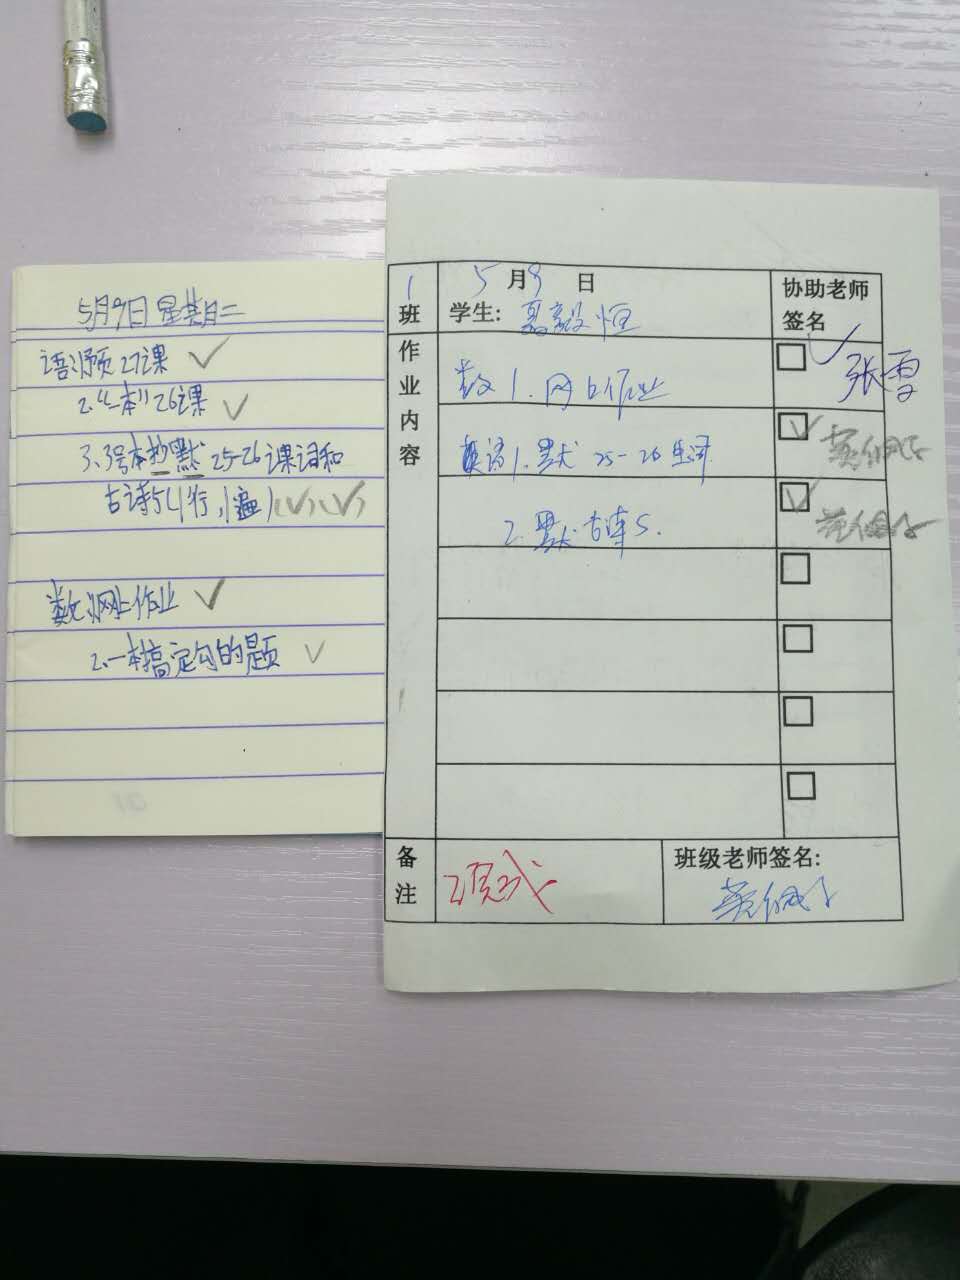 5月9日 星期二
语:1.预 27课
2.《一本》26课
3、3号本抄默 25-26课词和
古诗5(1行,1遍)(✓)(✓)
数:1.网上作业
2.一本搞定勾的题
1班
5月9日
学生:毅恒
协助老师
签名
作业内容
数 1.网上作业
张雪
语 1.默 25-26 生词
2.默 古诗 5.
备注
班级老师签名: